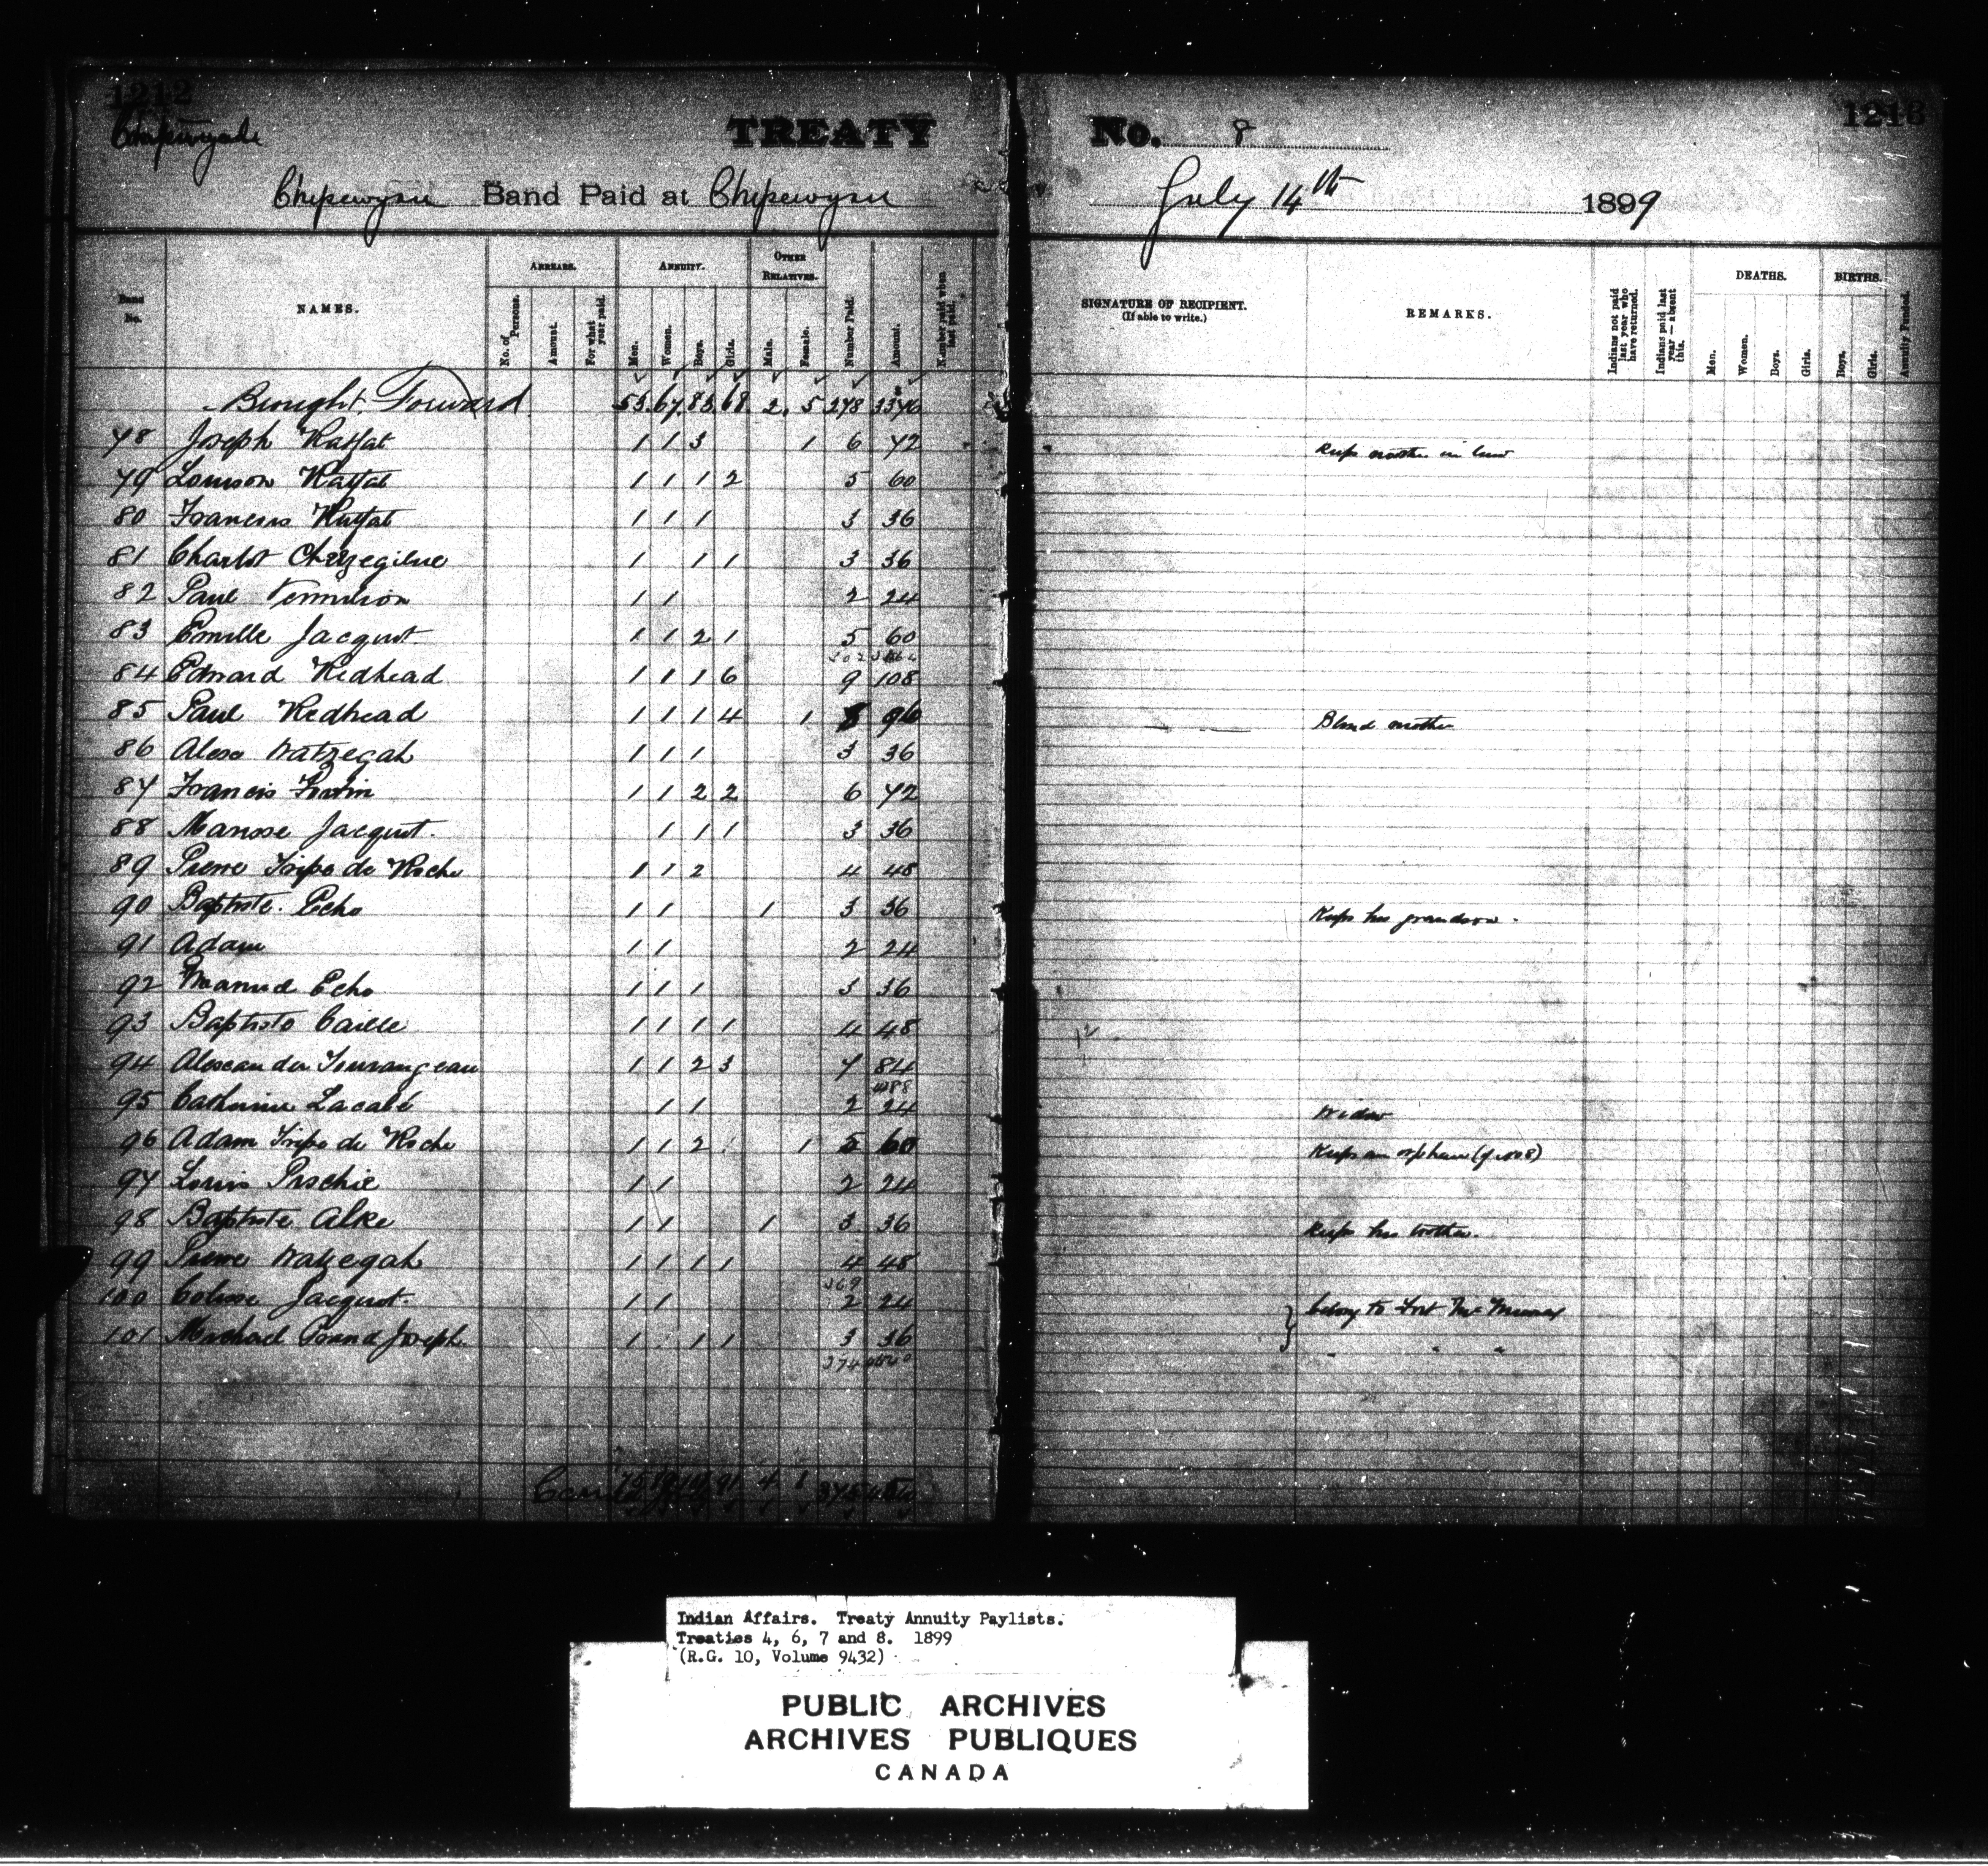 1212
Chipewyan
TREATY No. 8
1213
Chipewyan Band Paid at Chipewyan July 14th 1899
Band No. NAMES. ARREARS. ANNUITY. OTHER RELATIVES. Number Paid. Amount. Number paid when last paid.
No. of Persons. Amount. For what year paid. Men. Women. Boys. Girls. Male. Female.
SIGNATURE OF RECIPIENT. (If able to write.) REMARKS. Indians not paid last year who have returned. Indians paid last year — absent this. DEATHS. BIRTHS. Annuity Funded.
Men. Women. Boys. Girls. Boys. Girls.
Brought Forward 53 67 83 68 2 5 278 3346
78 Joseph Ratfat 1 1 3 1 6 72 Keeps mother in law
79 Louison Ratfat 1 1 1 2 5 60
80 Francois Ratfat 1 1 1 3 36
81 Charlot 1 1 1 3 36
82 Paul Vermilion 1 1 2 24
83 Emille Jacquot 1 1 2 1 5 60
84 Edward Redhead 1 1 1 6 9 108
85 Paul Redhead 1 1 1 4 1 8 96 Blind mother
86 Alexo Watzegah 1 1 1 3 36
87 Francis 1 1 2 2 6 72
88 Jacquot. 1 1 1 3 36
89 Pierre Tripe de Roche 1 1 2 4 48
90 Baptiste Echo 1 1 1 3 36 Keeps his grandson.
91 Adam 1 1 2 24
92 Echo 1 1 1 3 36
93 Baptiste Caille 1 1 1 1 4 48
94 Alexander Tourangeau 1 1 2 3 7 84
95 Catherine Lacaté 1 1 2 24 Widow
96 Adam Tripe de Roche 1 1 2 1 5 60 Keeps an orphan
97 Louis Pischie 1 1 2 24
98 Baptiste Alke 1 1 1 3 36 Keeps his brother.
99 Pierre Watzegah 1 1 1 1 4 48
369
100 Jacquot. 1 1 2 24 } belong to Fort McMurray
101 Michael Grand Joseph. 1 1 1 3 36 " " "
374
75 91 4
Indian Affairs. Treaty Annuity Paylists.
Treaties 4, 6, 7 and 8. 1899
(R.G. 10, Volume 9432)
PUBLIC ARCHIVES
ARCHIVES PUBLIQUES
CANADA